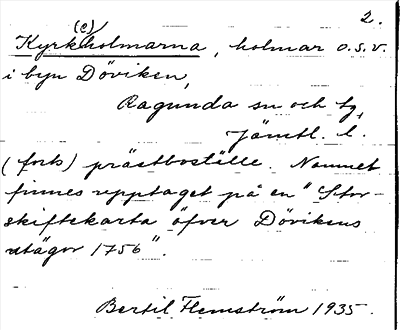 2.
Kyrk(e)holmarna, holmar o.s.v.
i byn Döviken,
Ragunda sn och tg,
Jämtl. l.
(forts) prästboställe. Namnet
finnes upptaget på en "Stor-
skifteskarta öfver Dövikens
utägor 1756".
Bertil Flemström 1935.